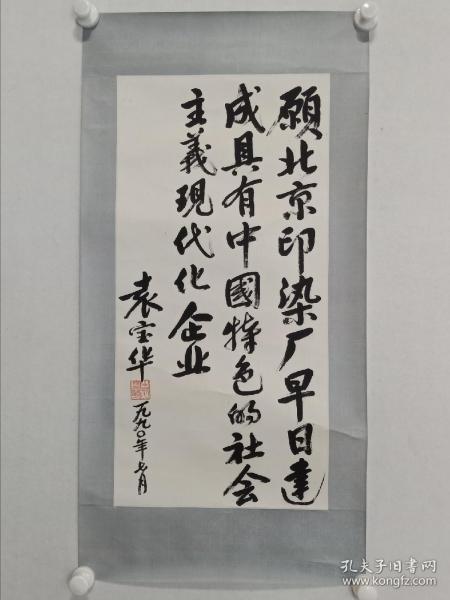 願北京印染厂早日達
成具有中國特色的社会
主義現代化企业
袁宝华
一九九〇年七月
孔夫子旧书网
www.kongfz.com